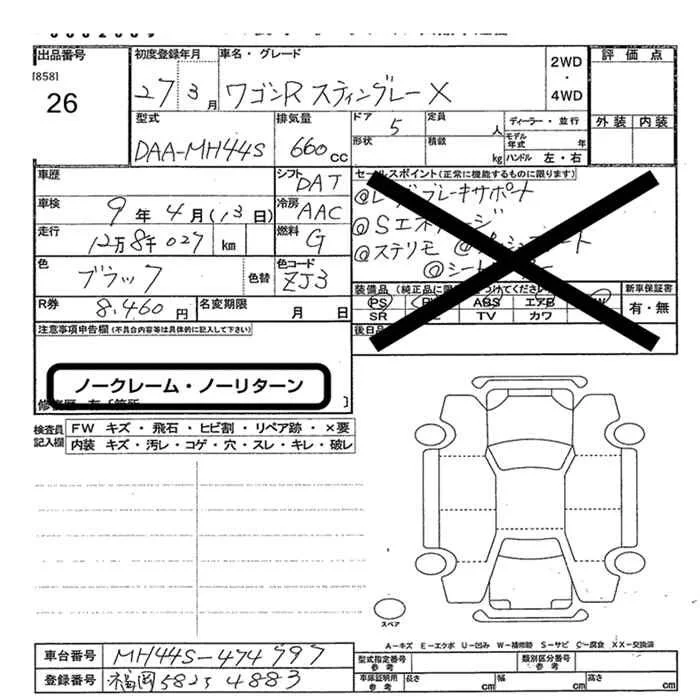 出品番号 初度登録年月 車名・グレード 2WD・4WD 評価点
[858]
26 27 3月 ワゴンR スティングレー X
外装 内装
型式 排気量 ドア 5 定員 人 ディーラー・並行
DAA-MH44S 660cc 形状 積載 kg モデル年式 年 ハンドル 左・右
車歴 シフト DAT セールスポイント(正常に機能するものに限ります)
車検 9年4月(13日) 冷房 AAC
@Sエネ
走行 12万8千027 km 燃料 G
@ステリモ
@シート
色 ブラック 色替 色コード ZJ3
装備品 新車保証書
R券 8,460円 名変期限 月 日
PS ABS エアB 有・無
SR TV カワ
注意事項申告欄(不具合内容等は具体的に記入して下さい) 後日品
ノークレーム・ノーリターン
検査員記入欄 FW キズ・飛石・ヒビ割・リペア跡・×要
内装 キズ・汚レ・コゲ・穴・スレ・キレ・破レ
スペア
A-キズ E-エクボ U-凹み W-補修跡 S-サビ C-腐食 XX-交換済
車台番号 MH44S-474797 型式指定番号参考 類別区分番号参考
登録番号 福岡 582 5 4883 車庫証明用参考 長さ cm 幅 cm 高さ cm